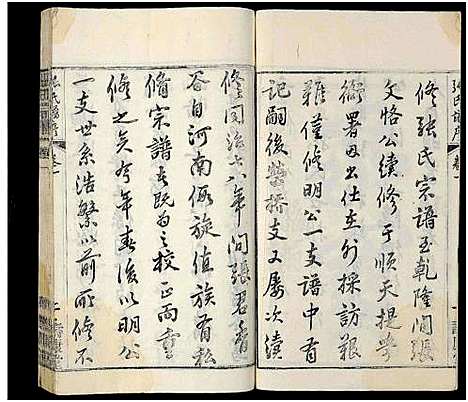 修張氏宗譜至乾隆間張
文恪公續修于順天提學
衙署因出仕在外採訪艱
難僅修明公一支譜中有
記嗣後橋支又屢次續
修同治七八年間張君
谷自河南偃旋值族有私
脩宗譜者既為之校正而
修之矣今年春復以明公
一支世系浩繁以前所修不
張氏譜序
卷一